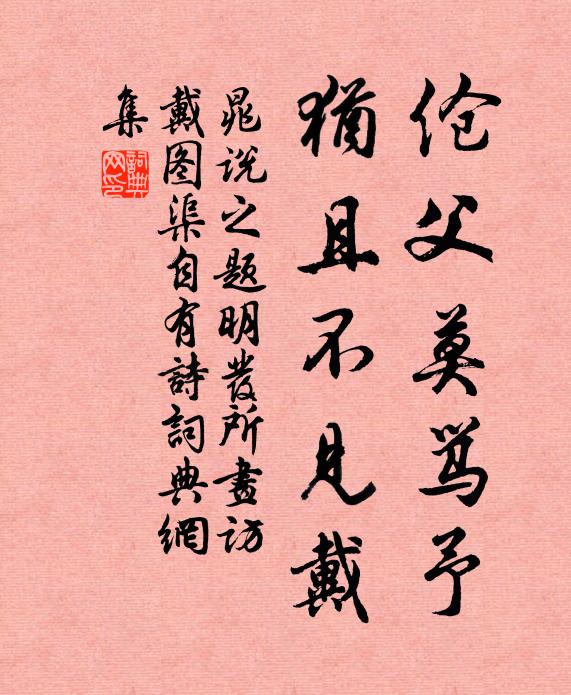 伧父莫骂予
犹且不见戴
晁说之题明发所畫访
戴图渠自有詩詞典網
集
詞典
网印